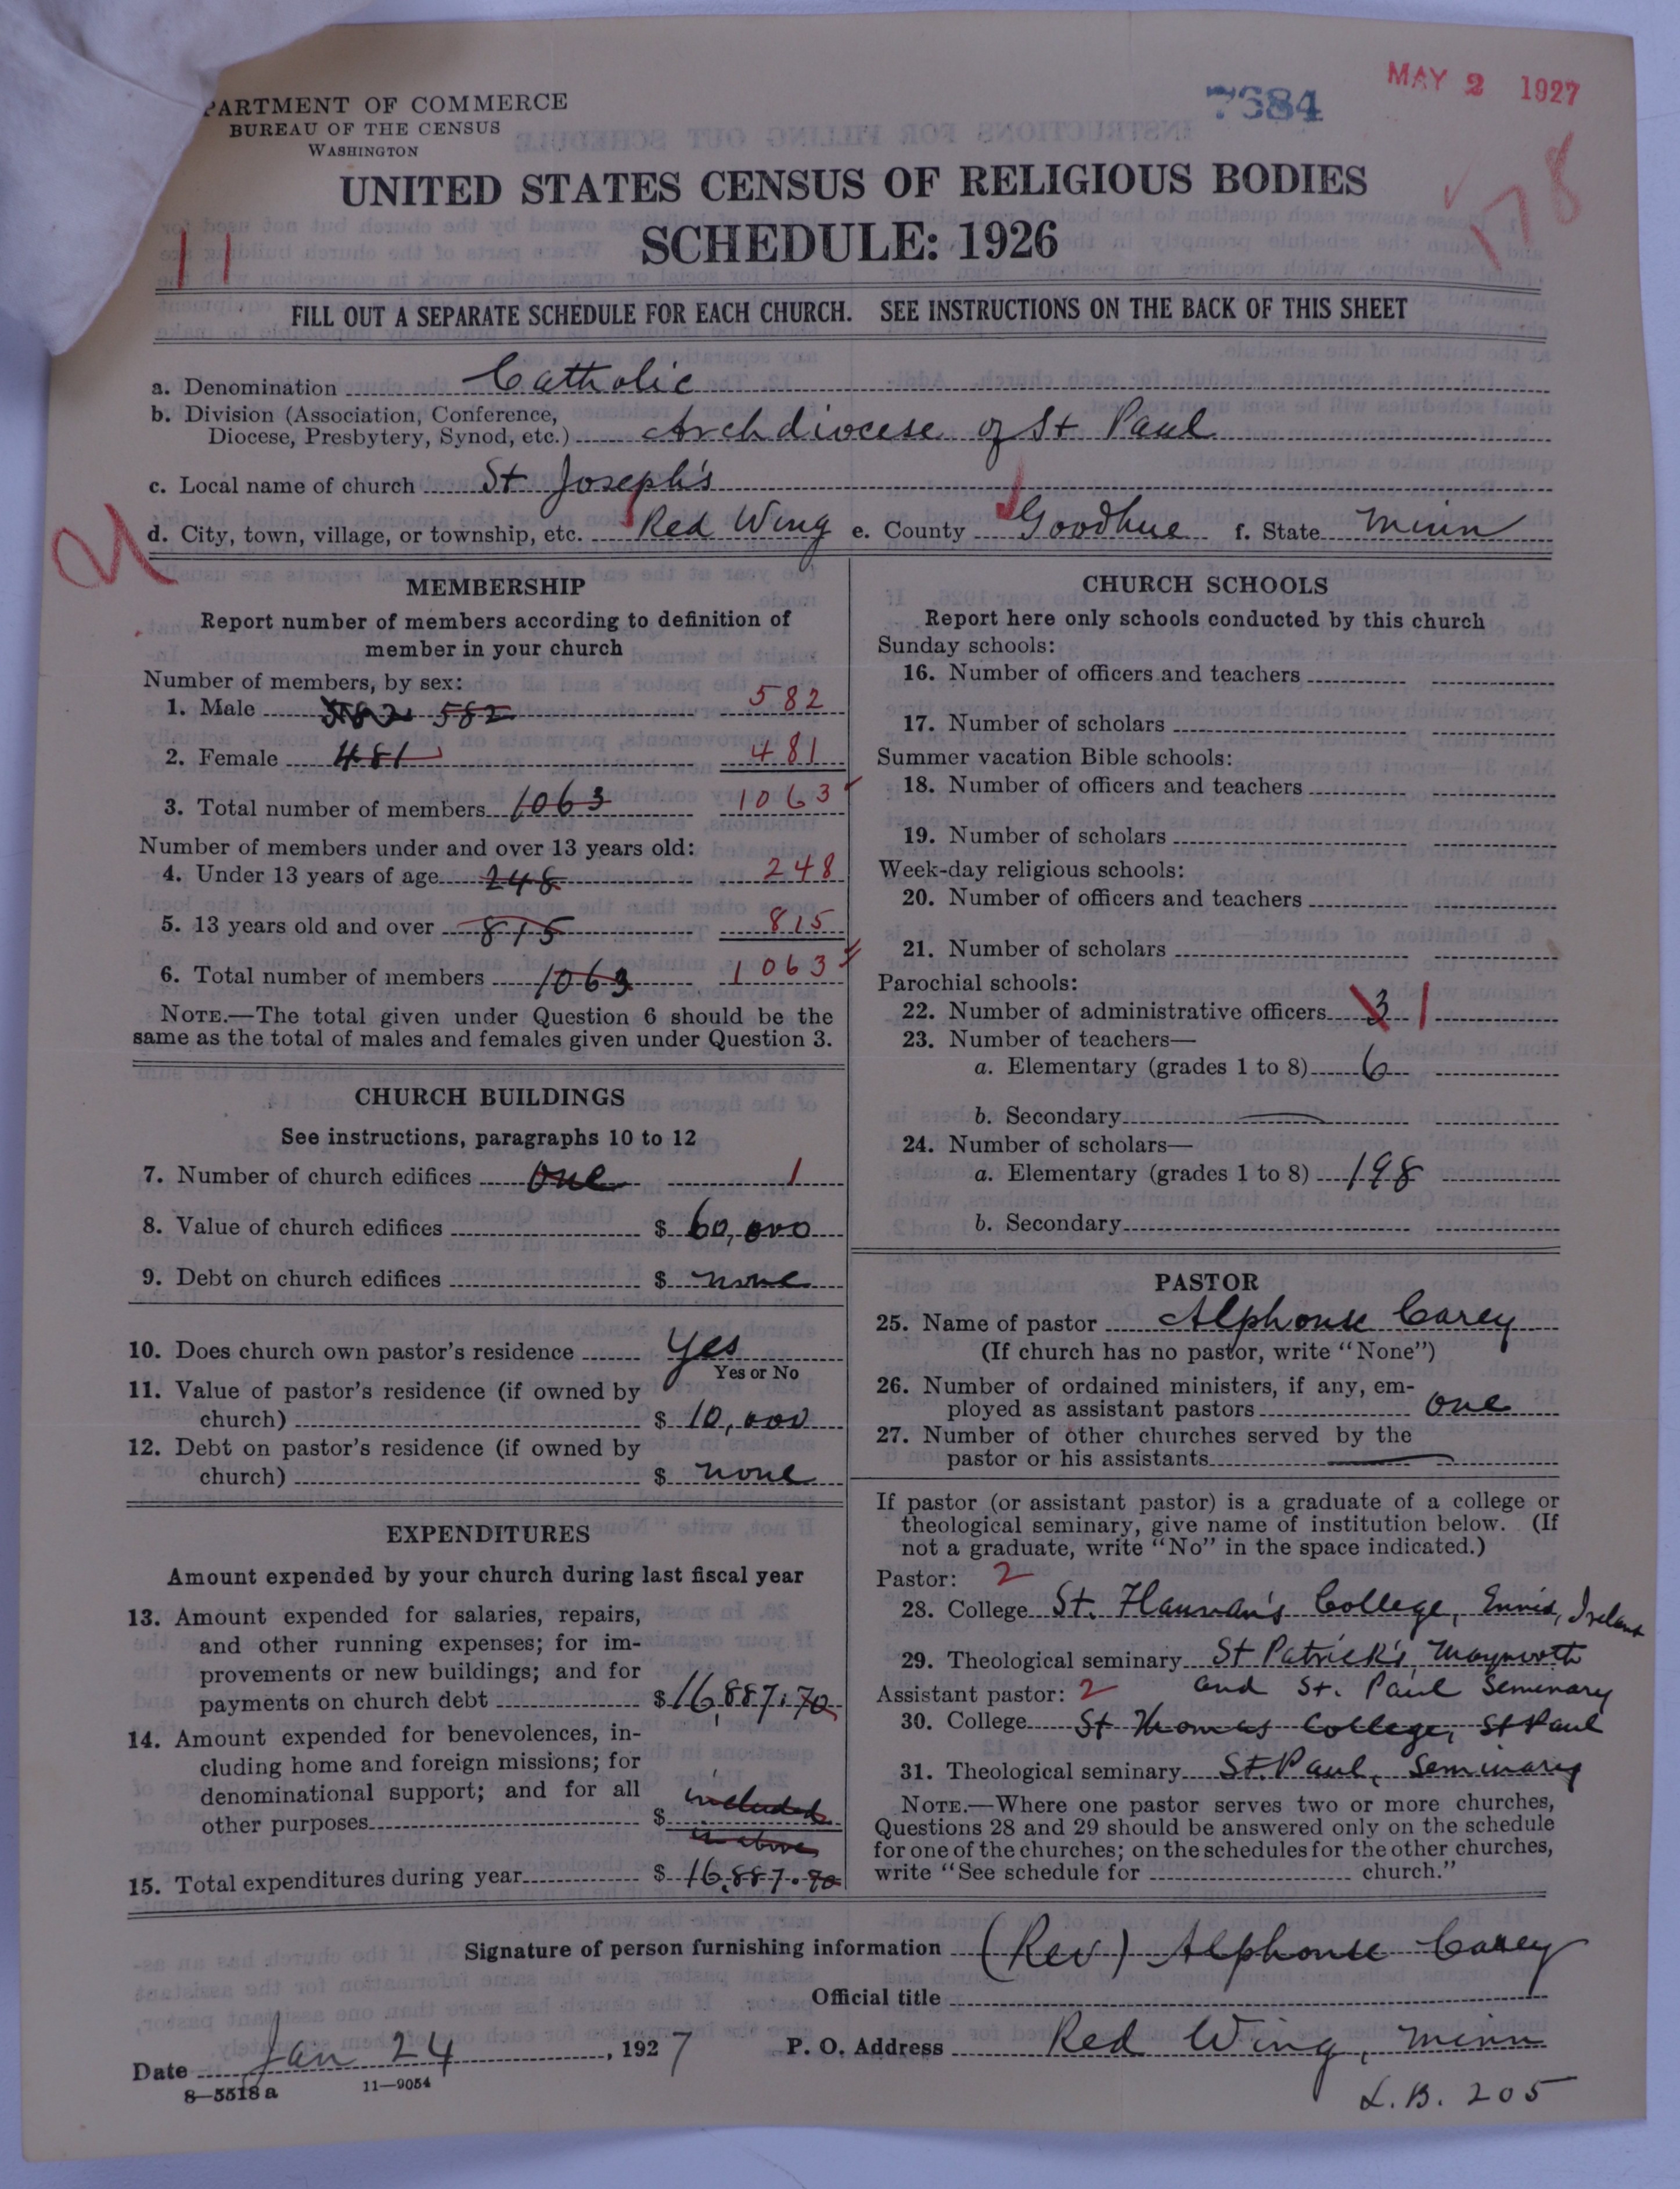 PARTMENT OF COMMERCE
BUREAU OF THE CENSUS
WASHINGTON
7684
MAY 2 1927
178
UNITED STATES CENSUS OF RELIGIOUS BODIES
SCHEDULE: 1926
11
FILL OUT A SEPARATE SCHEDULE FOR EACH CHURCH. SEE INSTRUCTIONS ON THE BACK OF THIS SHEET
a. Denomination Catholic
b. Division (Association, Conference,
Diocese, Presbytery, Synod, etc.) Archdiocese of St Paul
c. Local name of church St Joseph's
d. City, town, village, or township, etc. Red Wing e. County Goodhue f. State Minn
MEMBERSHIP
Report number of members according to definition of
member in your church
Number of members, by sex:
1. Male 582 582 582
2. Female 481 481
3. Total number of members 1063 1063
Number of members under and over 13 years old:
4. Under 13 years of age 248 248
5. 13 years old and over 815 815
6. Total number of members 1063 1063
NOTE.—The total given under Question 6 should be the
same as the total of males and females given under Question 3.
CHURCH BUILDINGS
See instructions, paragraphs 10 to 12
7. Number of church edifices one 1
8. Value of church edifices $ 60,000
9. Debt on church edifices $ none
10. Does church own pastor's residence Yes
Yes or No
11. Value of pastor's residence (if owned by
church) $ 10,000
12. Debt on pastor's residence (if owned by
church) $ none
EXPENDITURES
Amount expended by your church during last fiscal year
13. Amount expended for salaries, repairs,
and other running expenses; for im-
provements or new buildings; and for
payments on church debt $ 16,887.70
14. Amount expended for benevolences, in-
cluding home and foreign missions; for
denominational support; and for all
other purposes $ included
in above
15. Total expenditures during year $ 16,887.70
CHURCH SCHOOLS
Report here only schools conducted by this church
Sunday schools:
16. Number of officers and teachers
17. Number of scholars
Summer vacation Bible schools:
18. Number of officers and teachers
19. Number of scholars
Week-day religious schools:
20. Number of officers and teachers
21. Number of scholars
Parochial schools:
22. Number of administrative officers 3 1
23. Number of teachers—
a. Elementary (grades 1 to 8) 6
b. Secondary
24. Number of scholars—
a. Elementary (grades 1 to 8) 198
b. Secondary
PASTOR
25. Name of pastor Alphonse Carey
(If church has no pastor, write "None")
26. Number of ordained ministers, if any, em-
ployed as assistant pastors one
27. Number of other churches served by the
pastor or his assistants
If pastor (or assistant pastor) is a graduate of a college or
theological seminary, give name of institution below. (If
not a graduate, write "No" in the space indicated.)
Pastor: 2
28. College St. Flannan's College, Ennis, Ireland
29. Theological seminary St Patrick's, Maynooth
Assistant pastor: 2 and St. Paul Seminary
30. College St Thomas College, St Paul
31. Theological seminary St. Paul, Seminary
NOTE.—Where one pastor serves two or more churches,
Questions 28 and 29 should be answered only on the schedule
for one of the churches; on the schedules for the other churches,
write "See schedule for church."
Signature of person furnishing information (Rev) Alphonse Carey
Official title
Date Jan 24, 1927 P. O. Address Red Wing, Minn
8—5518 a 11—9054
L.B. 205